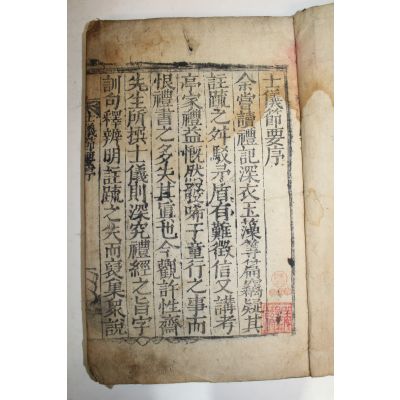 士儀節要序
余嘗讀禮記深衣玉藻等篇竊疑其
註疏之舛駁矛盾有難徵信又講考
亭家禮益慨然發唏子童行之事而
恨禮書之多失其眞也今觀許性齋
先生所撰士儀則深究禮經之旨字
訓句釋辨明註疏之失而裒集衆說
士儀節要序